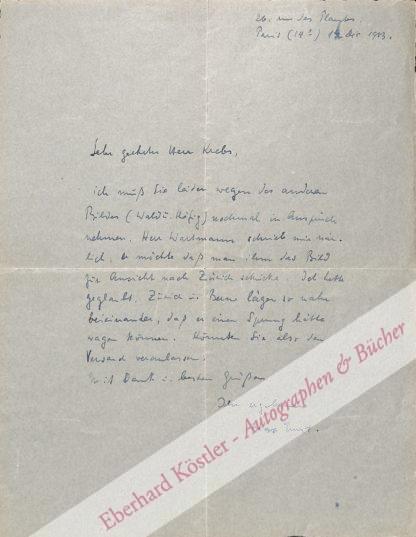 26, rue des Plantes
Paris (14e) 12 déc 1933.
Sehr geehrter Herr Krebs,
ich muß Sie leider wegen des anderen
Bildes (Wald u. Käfig) nochmal in Anspruch
nehmen. Herr Wartmann schrieb mir näm-
lich, er möchte daß man ihm das Bild
zur Ansicht nach Zürich schicke. Ich hatte
geglaubt, Zürich u. Bern lägen so nahe
beieinander, daß er einen Sprung hätte
wagen können. Könnten Sie also den
Versand veranlassen?
Mit Dank u. besten Grüßen
Ihr ergebener
Max Ernst.
Eberhard Köstler - Autographen & Bücher